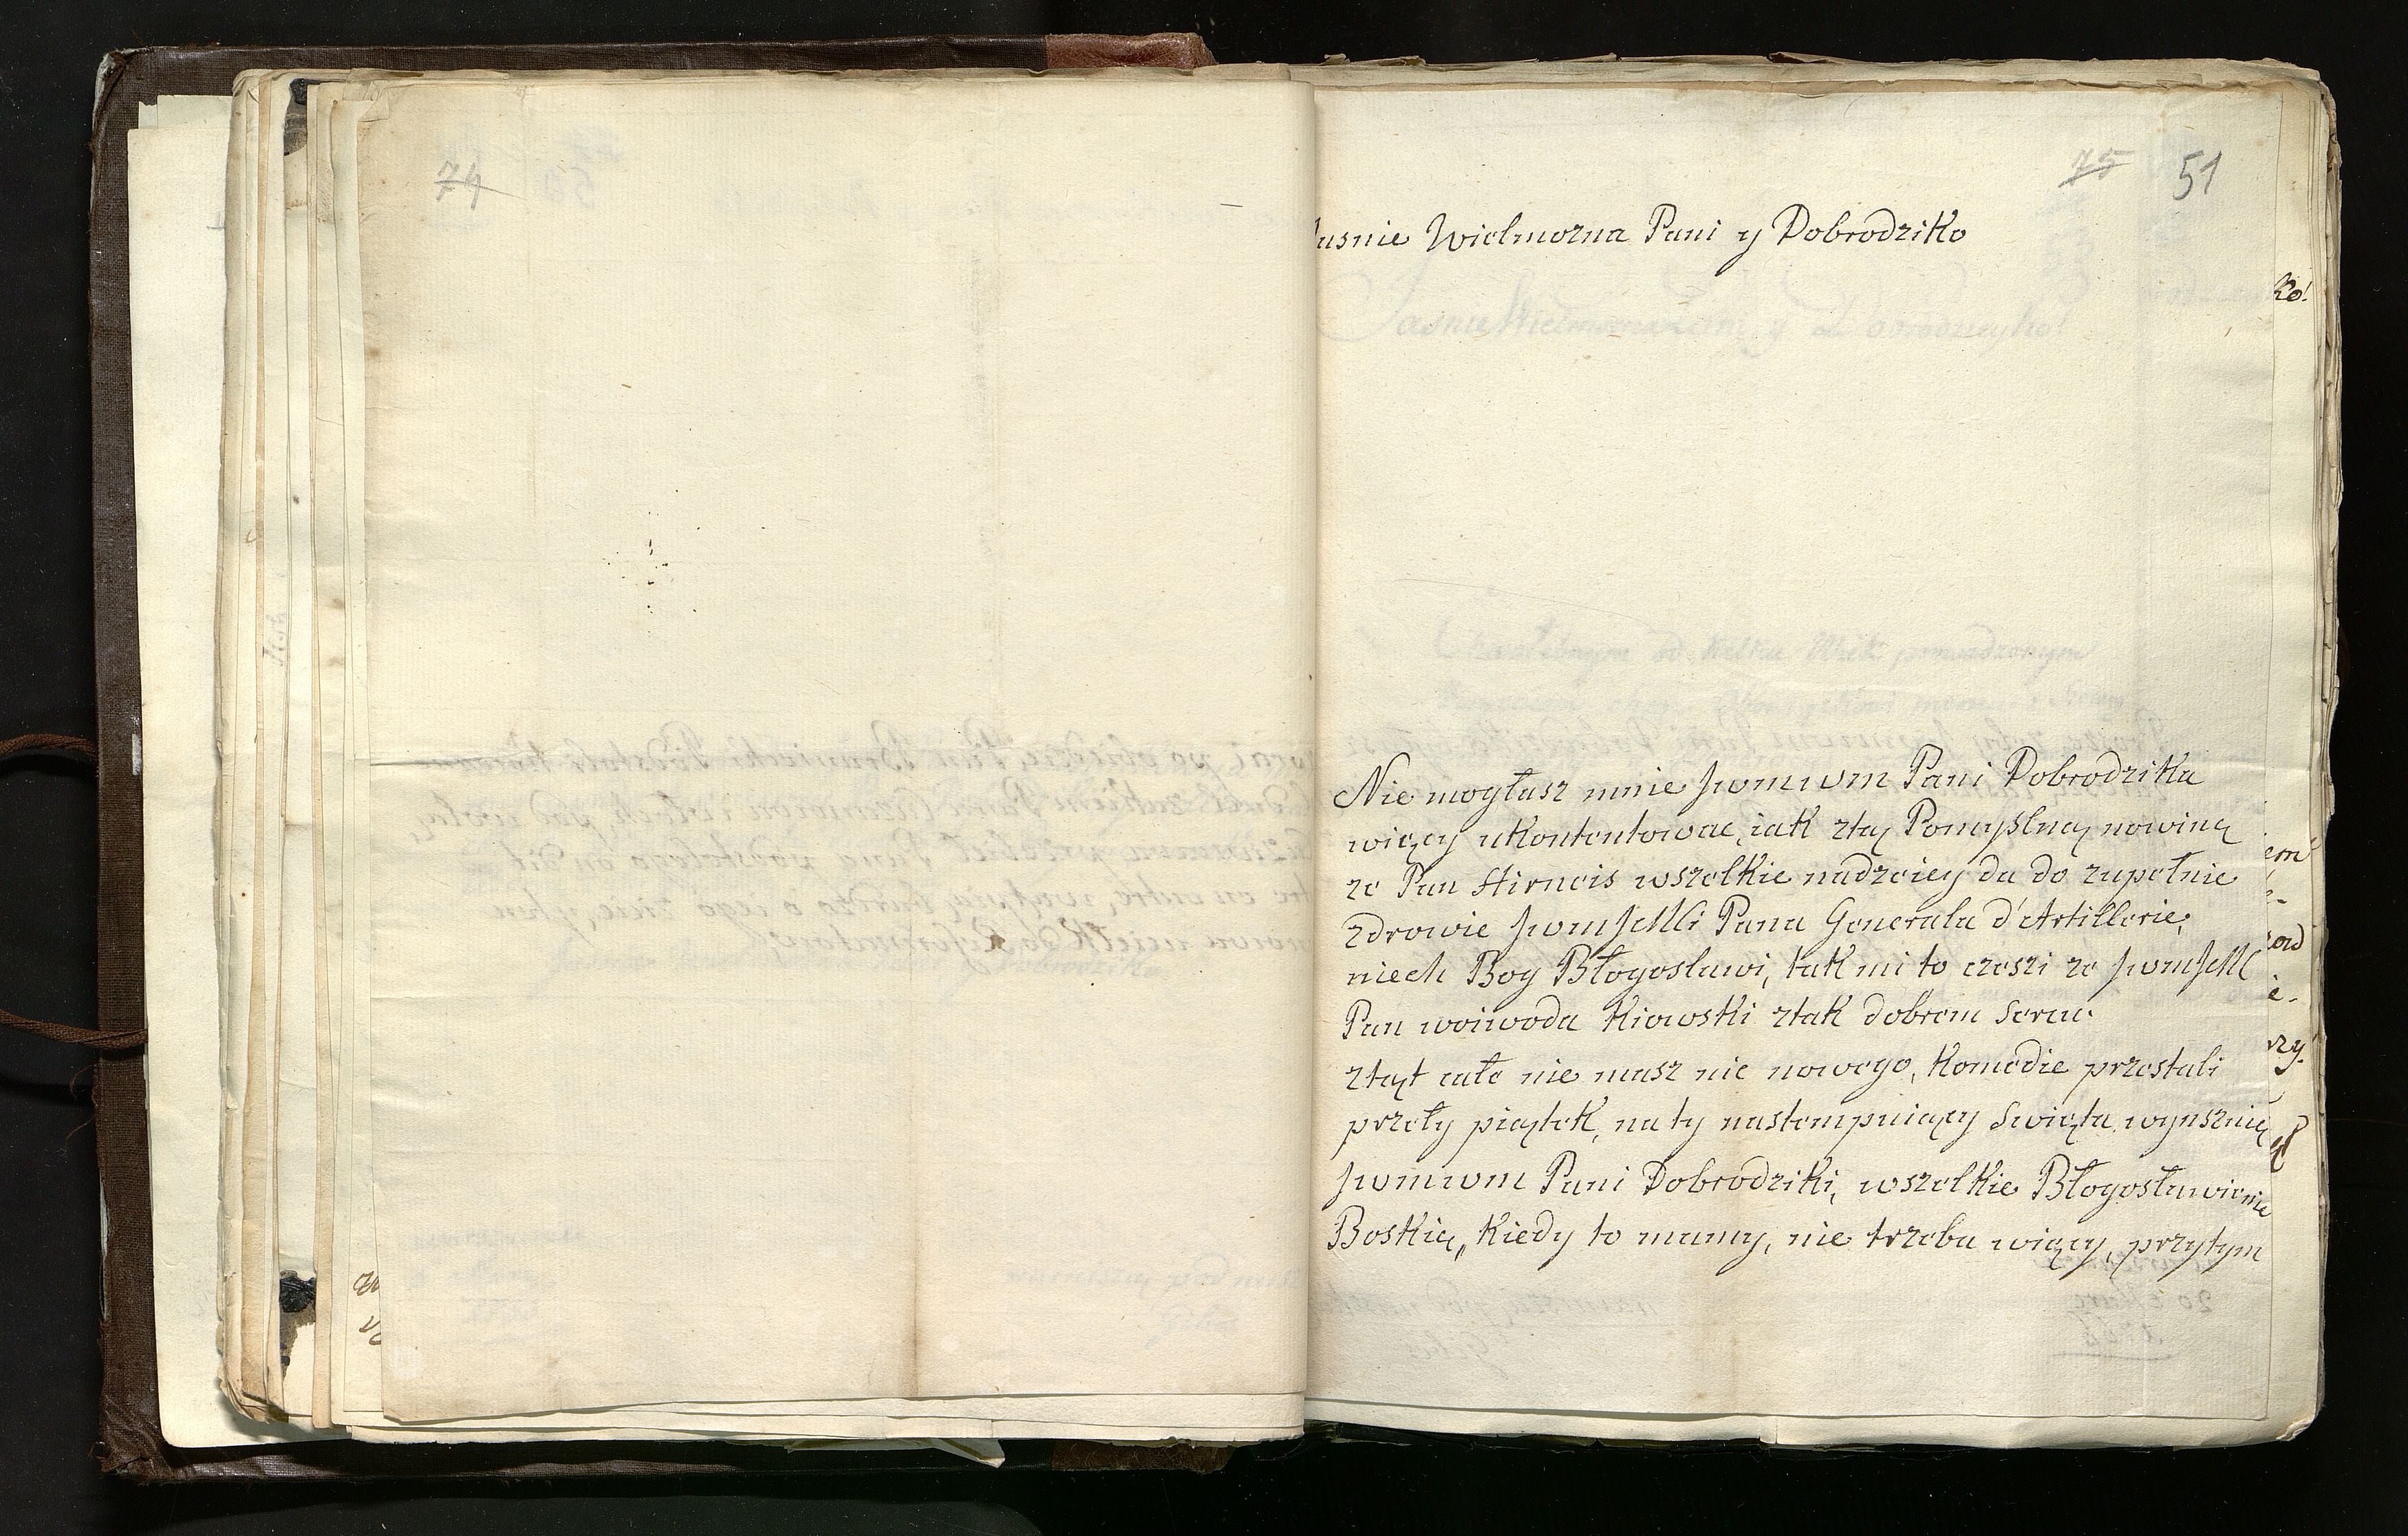 74
75 51
Jasnie Wielmozna Pani y Dobrodziko
Nie mogłasz mnie Jwmwm Pani Dobrodzika
więcy ukontentowac, iak ztaz Pomyslnaz nowinę
ze Pan Hirneis wszelkie nadzeiey da do zupełnie
zdrowie JwmJMCi Pana Generala d'Artillerie,
niech Bog Błogoslawi, tak mi to czeszi ze JwmJMC
Pan woiwoda Kiowski ztak dobrem sercu.
ztazt cale nie masz nic nowego, Komedie przestali
przety piątek, na ty nastempuiaący Swięta wynsznię
Jwmwm Pani Dobrodziki, wszelkie Błogosławienie
Boskię, Kiedy to mamy, nie trzeba więcy, przytym